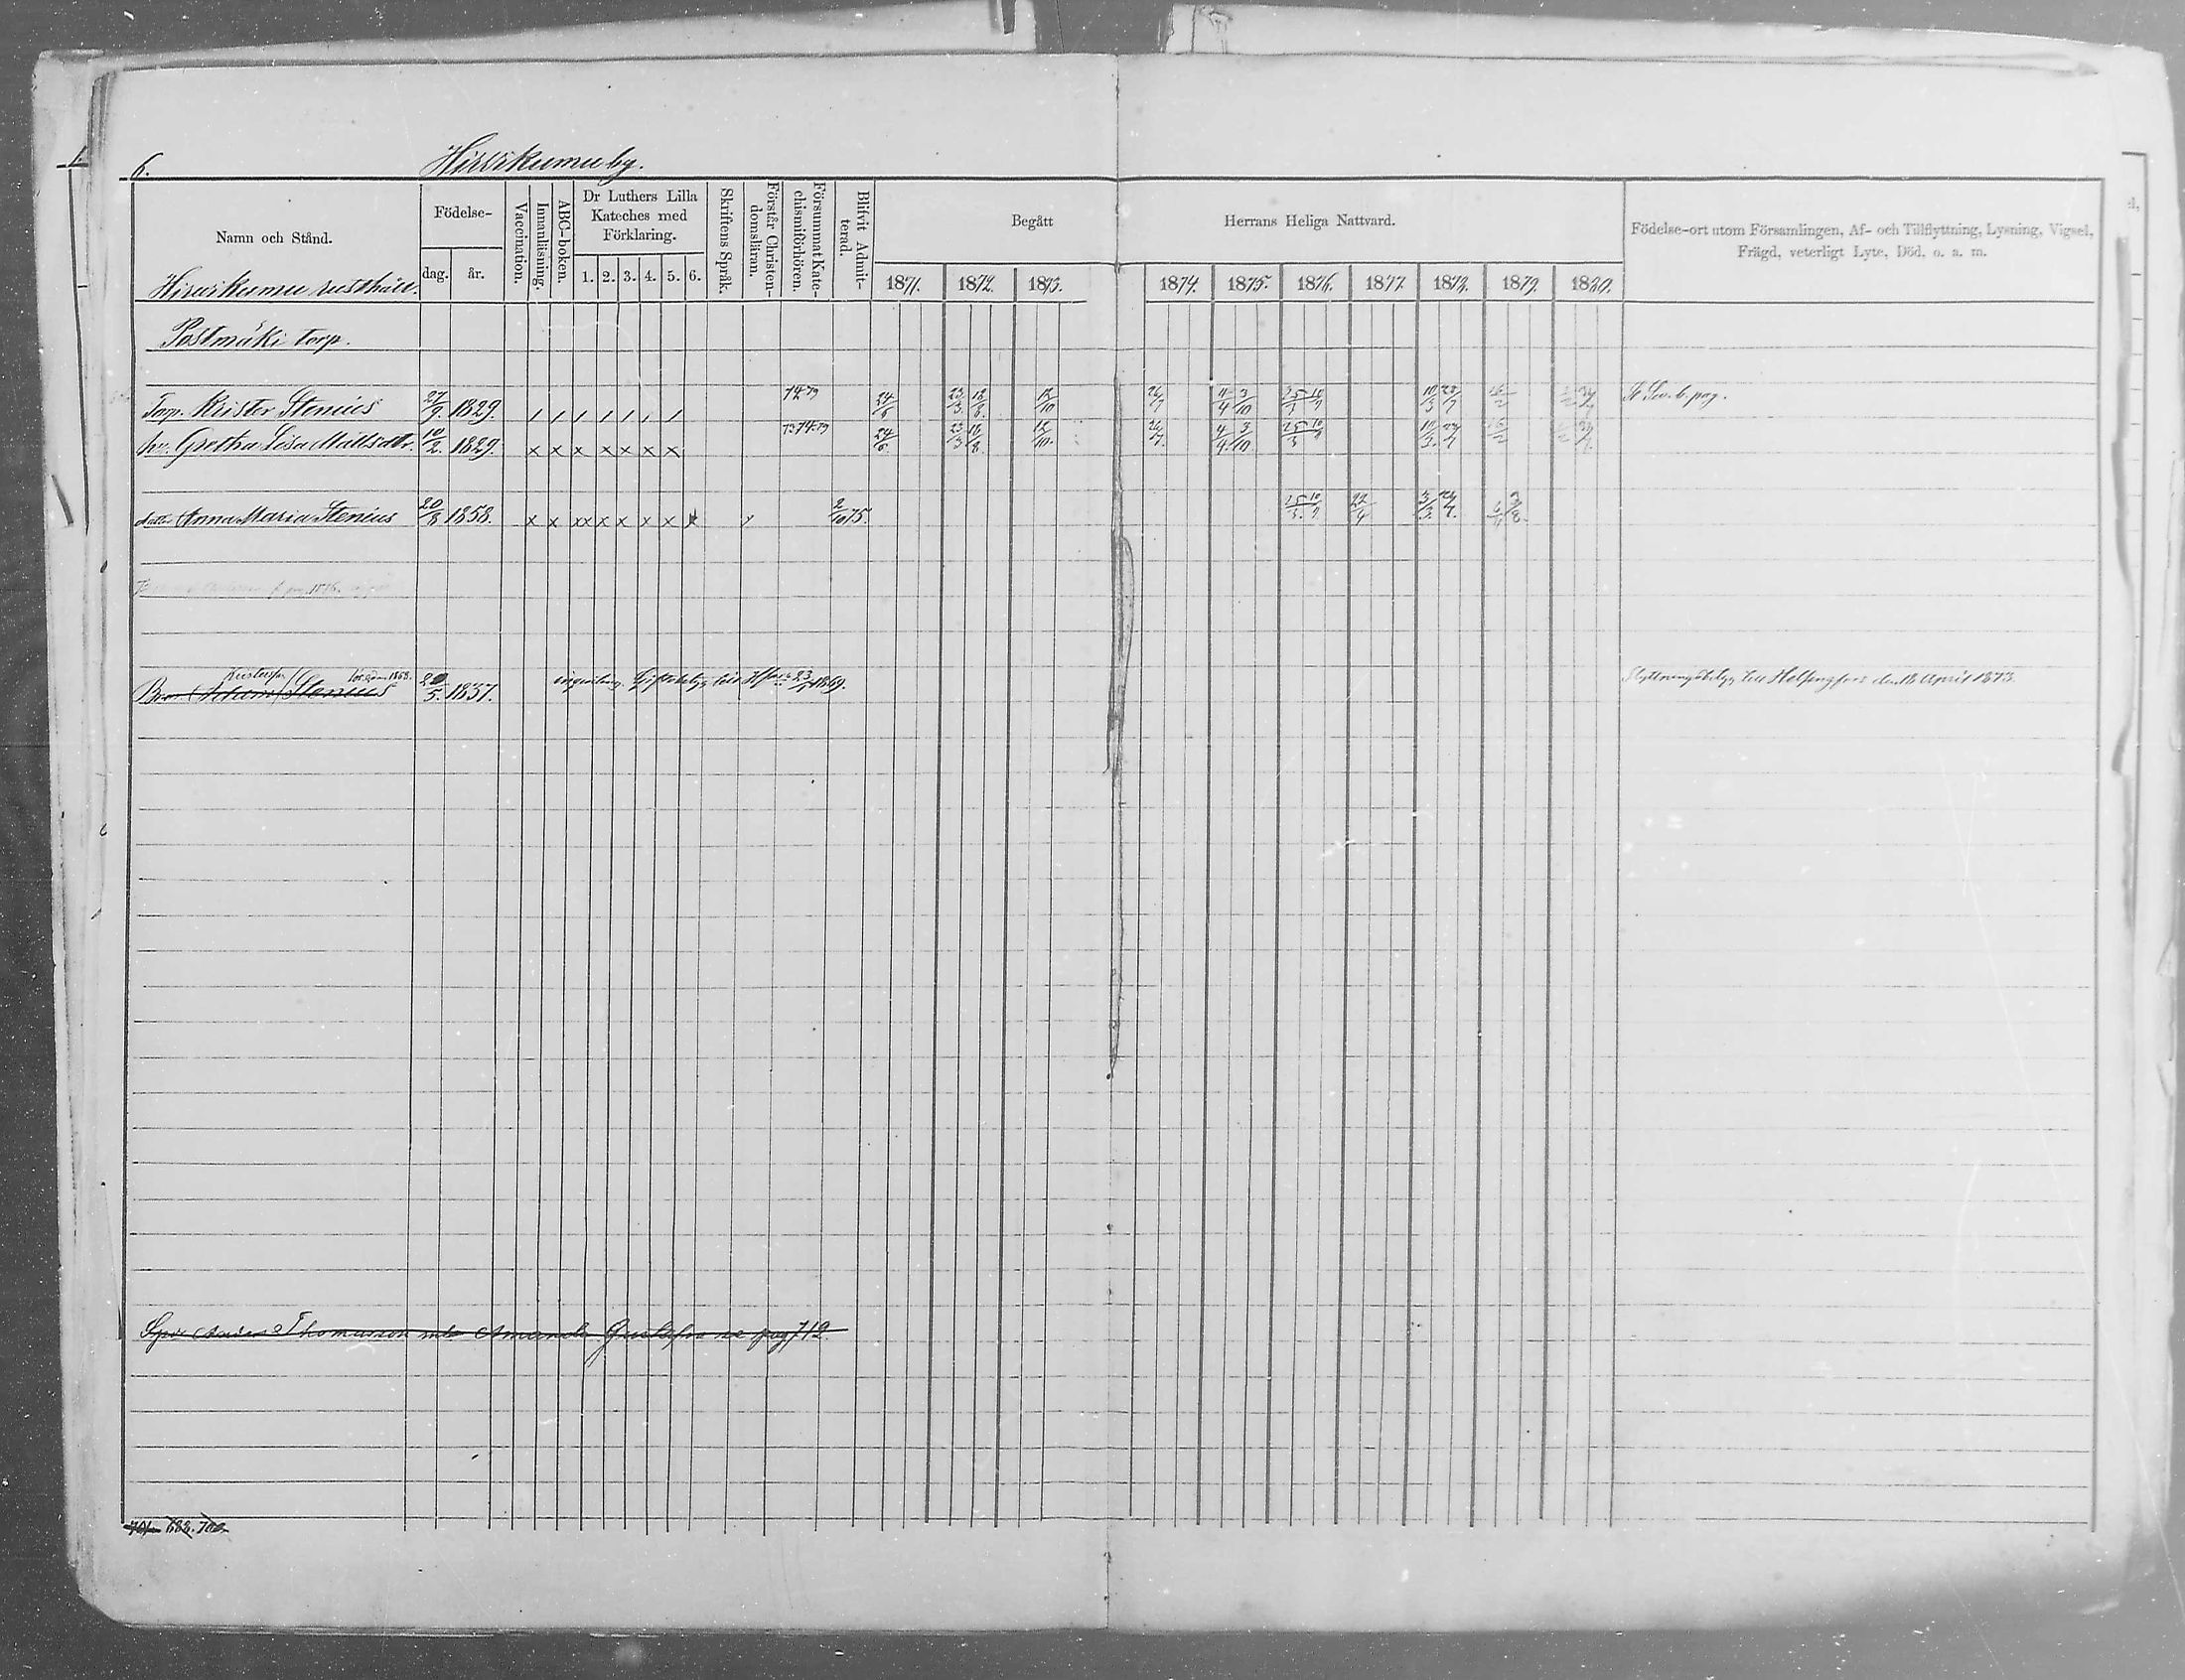 6.
Hirvikumu by.
Namn och Stånd.
Födelse-
dag. år.
Vaccination.
Innanläsning.
ABC-boken.
Dr Luthers Lilla
Kateches med
Förklaring.
1. 2. 3. 4. 5. 6.
Skriftens Språk.
Förstår Christen-
domsläran.
Försummat Kate-
chismiförhören.
Blifvit Admit-
terad.
Begått
Herrans Heliga Nattvard.
1871. 1872. 1873. 1874. 1875. 1876. 1877. 1878. 1879. 1880.
Födelse-ort utom Församlingen, Af- och Tillflyttning, Lysning, Vigsel,
Frägd, veterligt Lyte, Död, o. a. m.
Hirvikumu rusthåll.
Postmäki torp.
Torp. Krister Stenius 27/9. 1829. 24/6 23/3 18/8 12/10 26/7 4/4 3/10 25/3 10/9 10/3 28/7
hu. Gretha Lisa Mattsdtr. 10/2. 1829. x x x x x x x 24/6. 23/3 18/8. 12/10. 26/7. 4/4 3/10 25/3 10/9 10/3. 16/2
dotter Anna Maria Stenius 20/8 1858. x x xx x x x x x 2/10 75. 25/3. 10/9 22/4
Bror Adam Stenius 20/5. 1837. till Hfors 1869. Flyttningsbetyg till Helsingfors den 18 April 1873.
Thomasson Amanda pag 712
701. 688. 702.